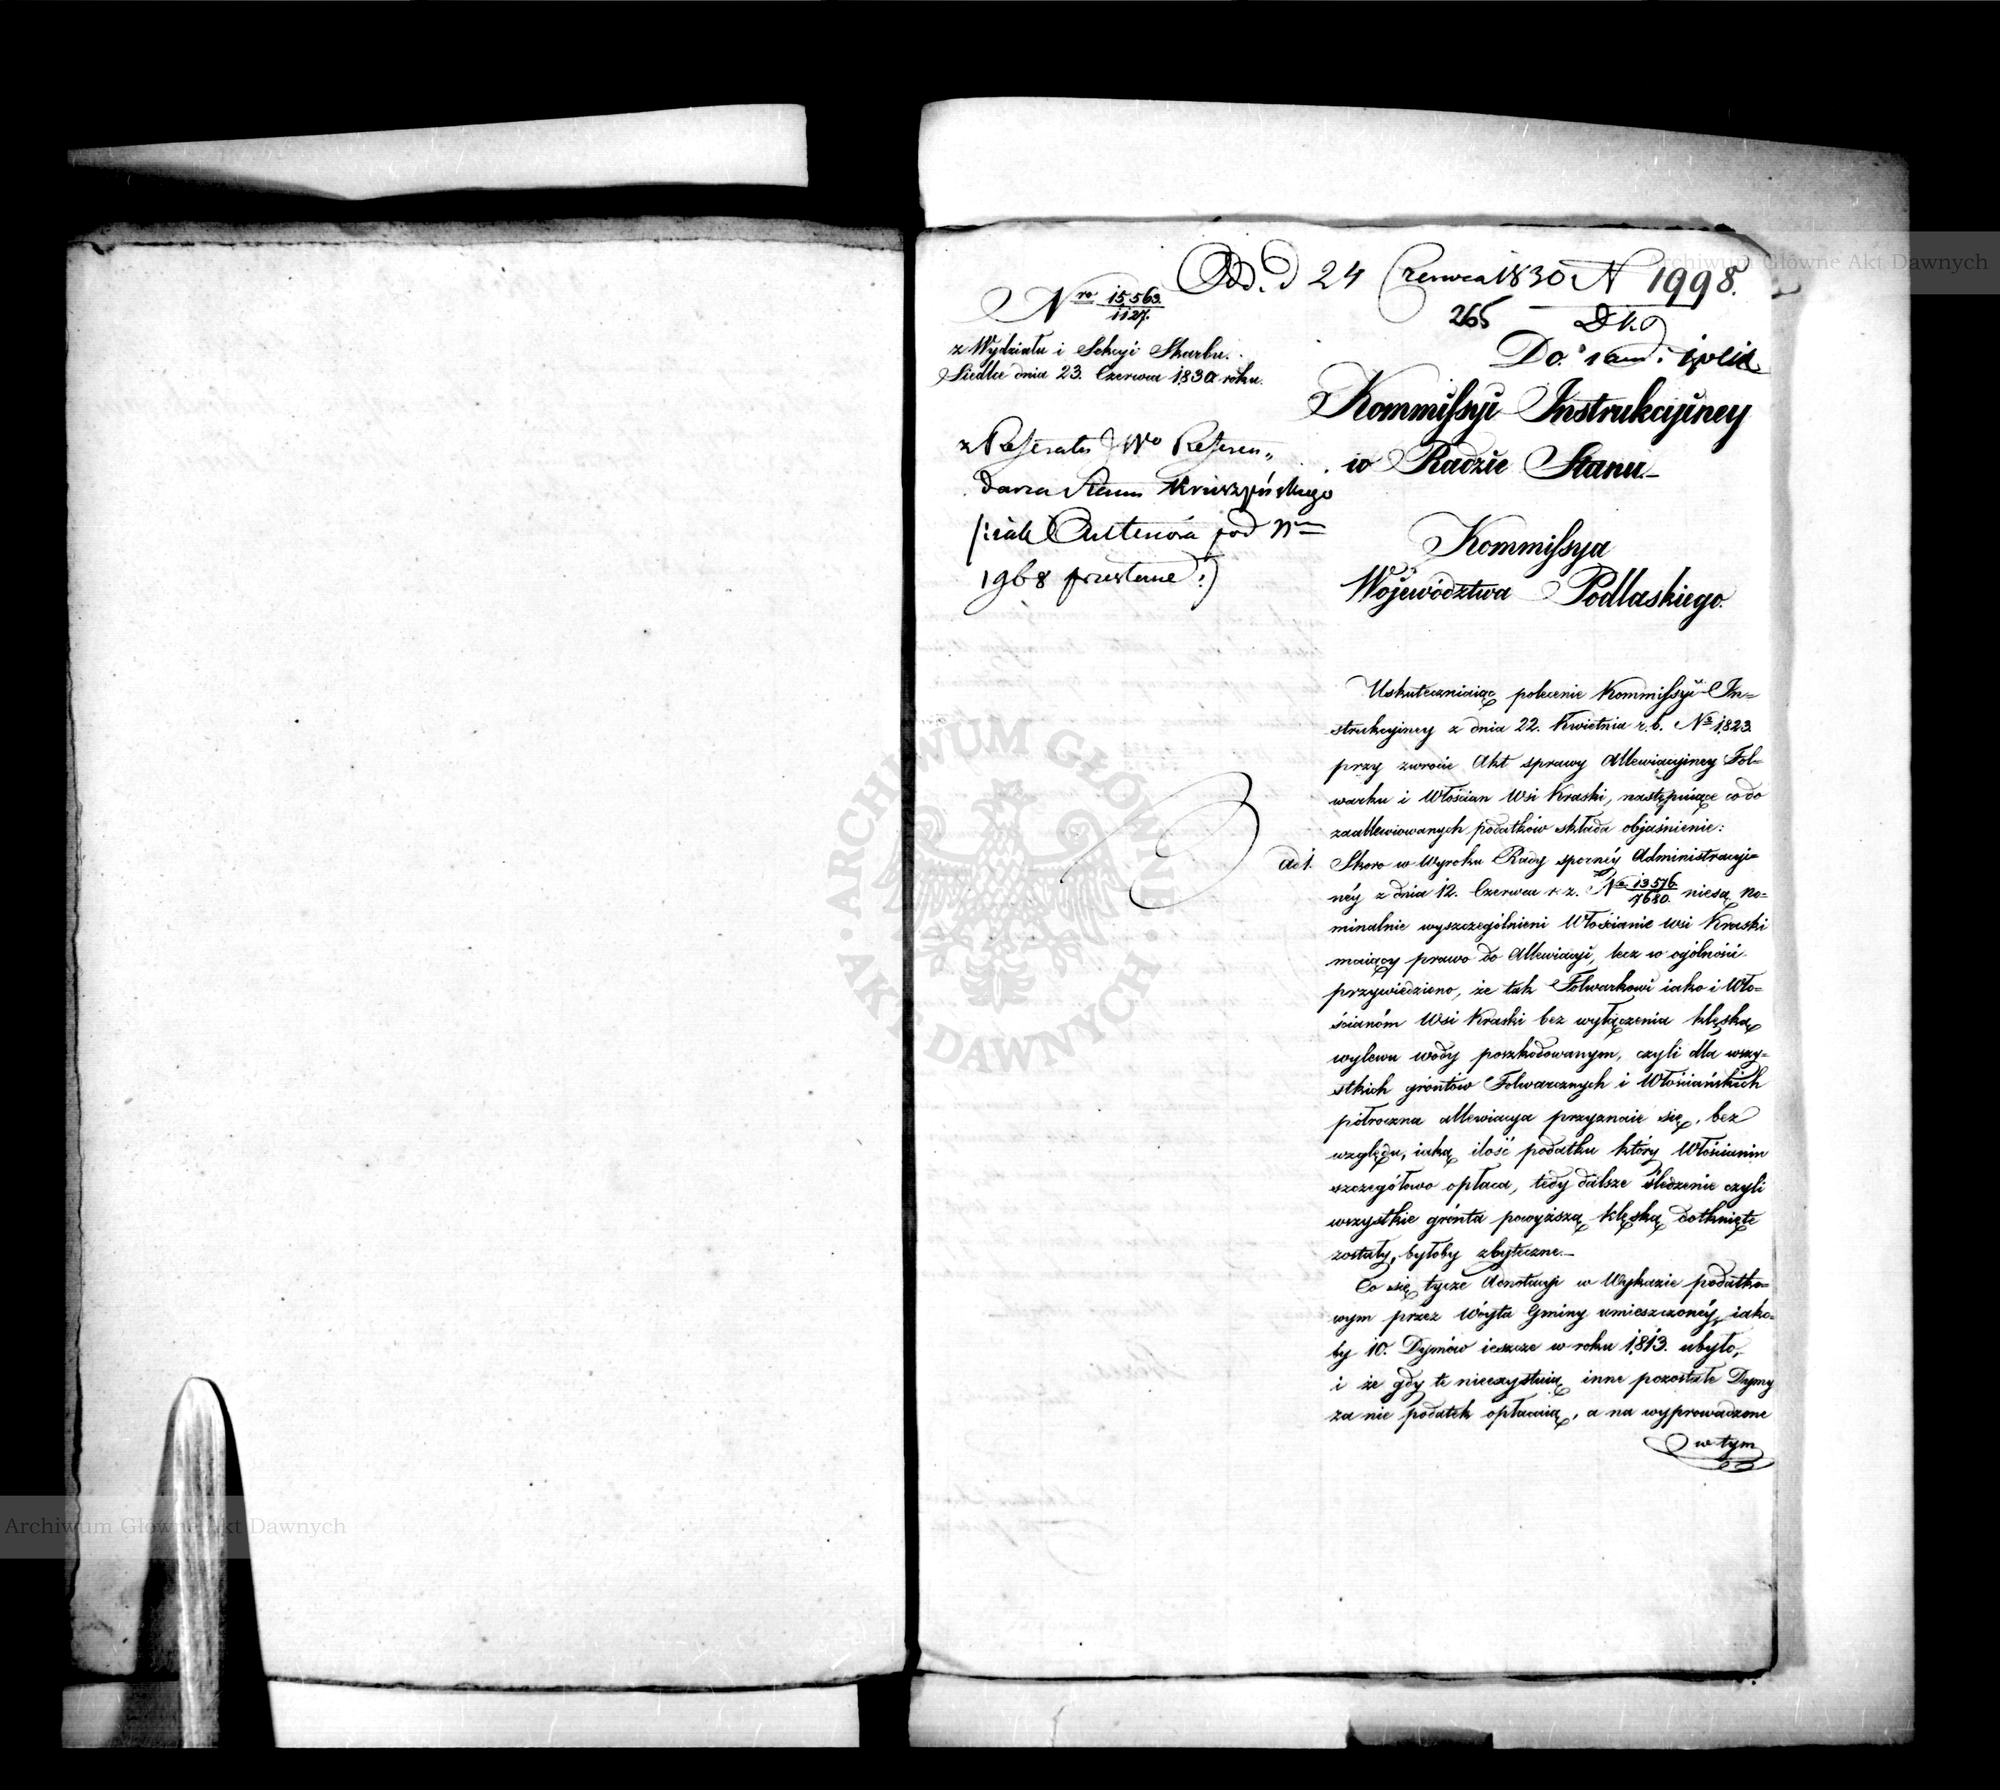 Odd. d 24 Czerwca 1830 N 1998.
265
Nro 15,563./1127.
z Wydziału i Sekcyi Skarbu.
Siedlce dnia 23. Czerwca 1830 roku.
z Referatu JWo Referen„
darza Stanu Kruszyńskiego
pod Nrm
1968
Do
Kommissyi Instrukcyiney
w Radzie Stanu.–
Kommissya
Województwa Podlaskiego.
Uskuteczniaiąc polecenie Kommissyi In=
strukcyiney z dnia 22. Kwietnia r.b. No 1,823.
przy zwrocie Akt sprawy Allewiacyiney Fol=
warku i Włościan Wsi Kraski, następuiące co do
zaallewiowanych podatków składa objaśnienie:
ad 1. Skoro w Wyroku Rady sporney Administracyi=
néy z dnia 12. Czerwca r. z. No 13576./7680. niesą no=
minalnie wyszczególnieni Włościanie wsi Kraski
maiący prawo do Allewiacyi, lecz w ogólności
przywiedziono, że tak Folwarkowi iako i Wło=
ścianóm Wsi Kraski bez wyłączenia klęską
wylewu wody poszkodowanym, czyli dla wszy=
stkich gróntów Folwarcznych i Włościańskich
półroczna allewiacya przyznaie się, bez
względu, iaką ilość podatku który Włościanin
szczegółowo opłaca, tedy dalsze śledzenie czyli
wszystkie grónta powyższą klęską dotknięte
zostały, byłoby zbyteczne.–
Co się tycze Adnotacyi w Wykazie podatko=
wym przez Wóyta Gminy umieszczonéy, iako=
by 10. Dymów ieszcze w roku 1,813. ubyło,
i że gdy te nieexystuią inne pozostałe Dymy
za nie podatek opłacaią, a na wyprowadzone
w tym
ARCHIWUM GŁÓWNE AKT DAWNYCH
Archiwum Główne Akt Dawnych
Archiwum Główne Akt Dawnych